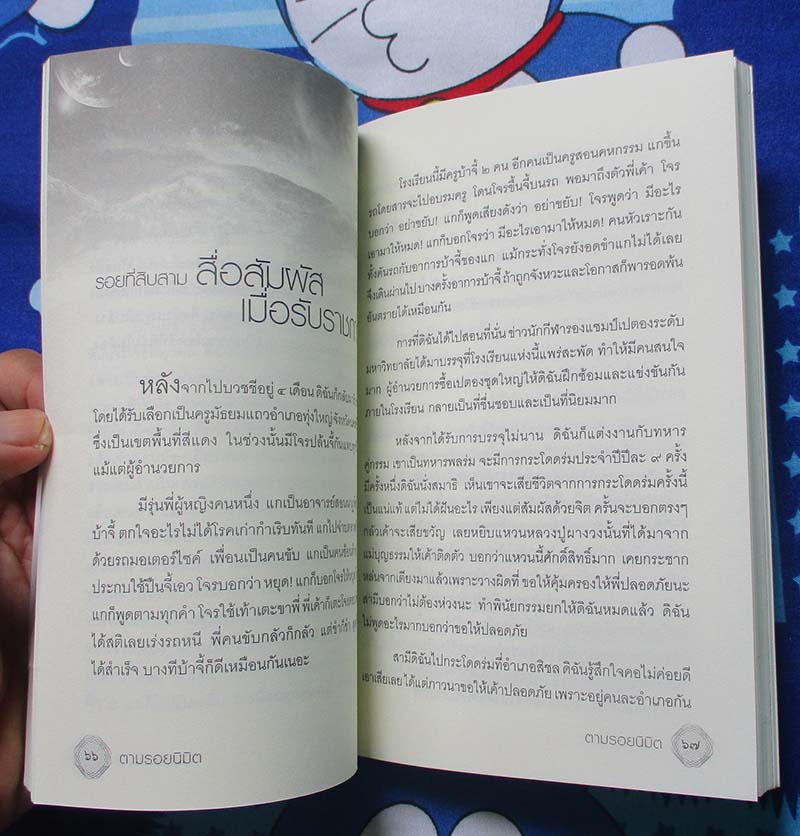 รอยที่สิบสาม สื่อสัมผัส
เมื่อรับราชก
หลังจากไปบวชชีอยู่ ๔ เดือน ดิฉันก็กลับ
โดยได้รับเลือกเป็นครูมัธยมแถวอำเภอทุ่งใหญ่จังหวัด
ซึ่งเป็นเขตพื้นที่สีแดง ในช่วงนั้นมีโจรปล้นจี้กัน
แม้แต่ผู้อำนวยการ
มีรุ่นพี่ผู้หญิงคนหนึ่ง แกเป็นอาจารย์สอน
บ้าจี้ ตกใจอะไรไม่ได้โรคเก่ากำเริบทันที แกไปจ่าย
ด้วยรถมอเตอร์ไซค์ เพื่อนเป็นคนขับ แกเป็นคนซ้อน
ประกบใช้ปืนจี้เอว โจรบอกว่า หยุด! แกก็บอกโจร
แกก็พูดตามทุกคำ โจรใช้เท้าเตะขาพี่ พี่เค้าก็เตะโจร
ได้สติเลยเร่งรถหนี พี่คนขับกลัวก็กลัว แต่ขำก็ขำ
ได้สำเร็จ บางทีบ้าจี้ก็ดีเหมือนกันเนอะ
๖๖ ตามรอยนิมิต
โรงเรียนนี้มีครูบ้าจี้ ๒ คน อีกคนเป็นครูสอนคหกรรม แกขึ้น
รถโดยสารจะไปอบรมครู โดนโจรขึ้นจี้บนรถ พอมาถึงตัวพี่เค้า โจร
บอกว่า อย่าขยับ! แกก็พูดเสียงดังว่า อย่าขยับ! โจรพูดว่า มีอะไร
เอามาให้หมด! แกก็บอกโจรว่า มีอะไรเอามาให้หมด! คนหัวเราะกัน
ทั้งคันรถกับอาการบ้าจี้ของแก แม้กระทั่งโจรยังอดขำแกไม่ได้เลย
จึงเดินผ่านไป บางครั้งอาการบ้าจี้ ถ้าถูกจังหวะและโอกาสก็พารอดพ้น
อันตรายได้เหมือนกัน
การที่ดิฉันได้ไปสอนที่นั่น ข่าวนักกีฬารองแชมป์เปตองระดับ
มหาวิทยาลัยได้มาบรรจุที่โรงเรียนแห่งนี้แพร่สะพัด ทำให้มีคนสนใจ
มาก ผู้อำนวยการซื้อเปตองชุดใหญ่ให้ดิฉันฝึกซ้อมและแข่งขันกัน
ภายในโรงเรียน กลายเป็นที่ชื่นชอบและเป็นที่นิยมมาก
หลังจากได้รับการบรรจุไม่นาน ดิฉันก็แต่งงานกับทหาร
คู่กรรม เขาเป็นทหารพลร่ม จะมีการกระโดดร่มประจำปีปีละ ๙ ครั้ง
มีครั้งหนึ่งดิฉันนั่งสมาธิ เห็นเขาจะเสียชีวิตจากการกระโดดร่มครั้งนี้
เป็นแน่แท้ แต่ไม่ได้ฝันอะไร เพียงแต่สัมผัสด้วยจิต ครั้นจะบอกตรงๆ
กลัวเค้าจะเสียขวัญ เลยหยิบแหวนหลวงปู่ผางวงนั้นที่ได้มาจาก
แม่บุญธรรมให้เค้าติดตัว บอกว่าแหวนนี้ศักดิ์สิทธิ์มาก เคยกระชาก
หล่นจากเตียงมาแล้วเพราะวางผิดที่ ขอให้คุ้มครองให้พี่ปลอดภัยนะ
สามีบอกว่าไม่ต้องห่วงนะ ทำพินัยกรรมยกให้ดิฉันหมดแล้ว ดิฉัน
ไม่พูดอะไรมากบอกว่าขอให้ปลอดภัย
สามีดิฉันไปกระโดดร่มที่อำเภอสิชล ดิฉันรู้สึกใจคอไม่ค่อยดี
เอาเสียเลย ได้แต่ภาวนาขอให้เค้าปลอดภัย เพราะอยู่คนละอำเภอกัน
ตามรอยนิมิต ๖๗